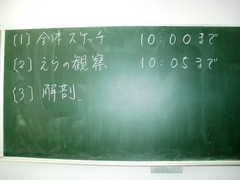 (1) 全体スケッチ 10:00まで
(2) えらの観察 10:05まで
(3) 解剖